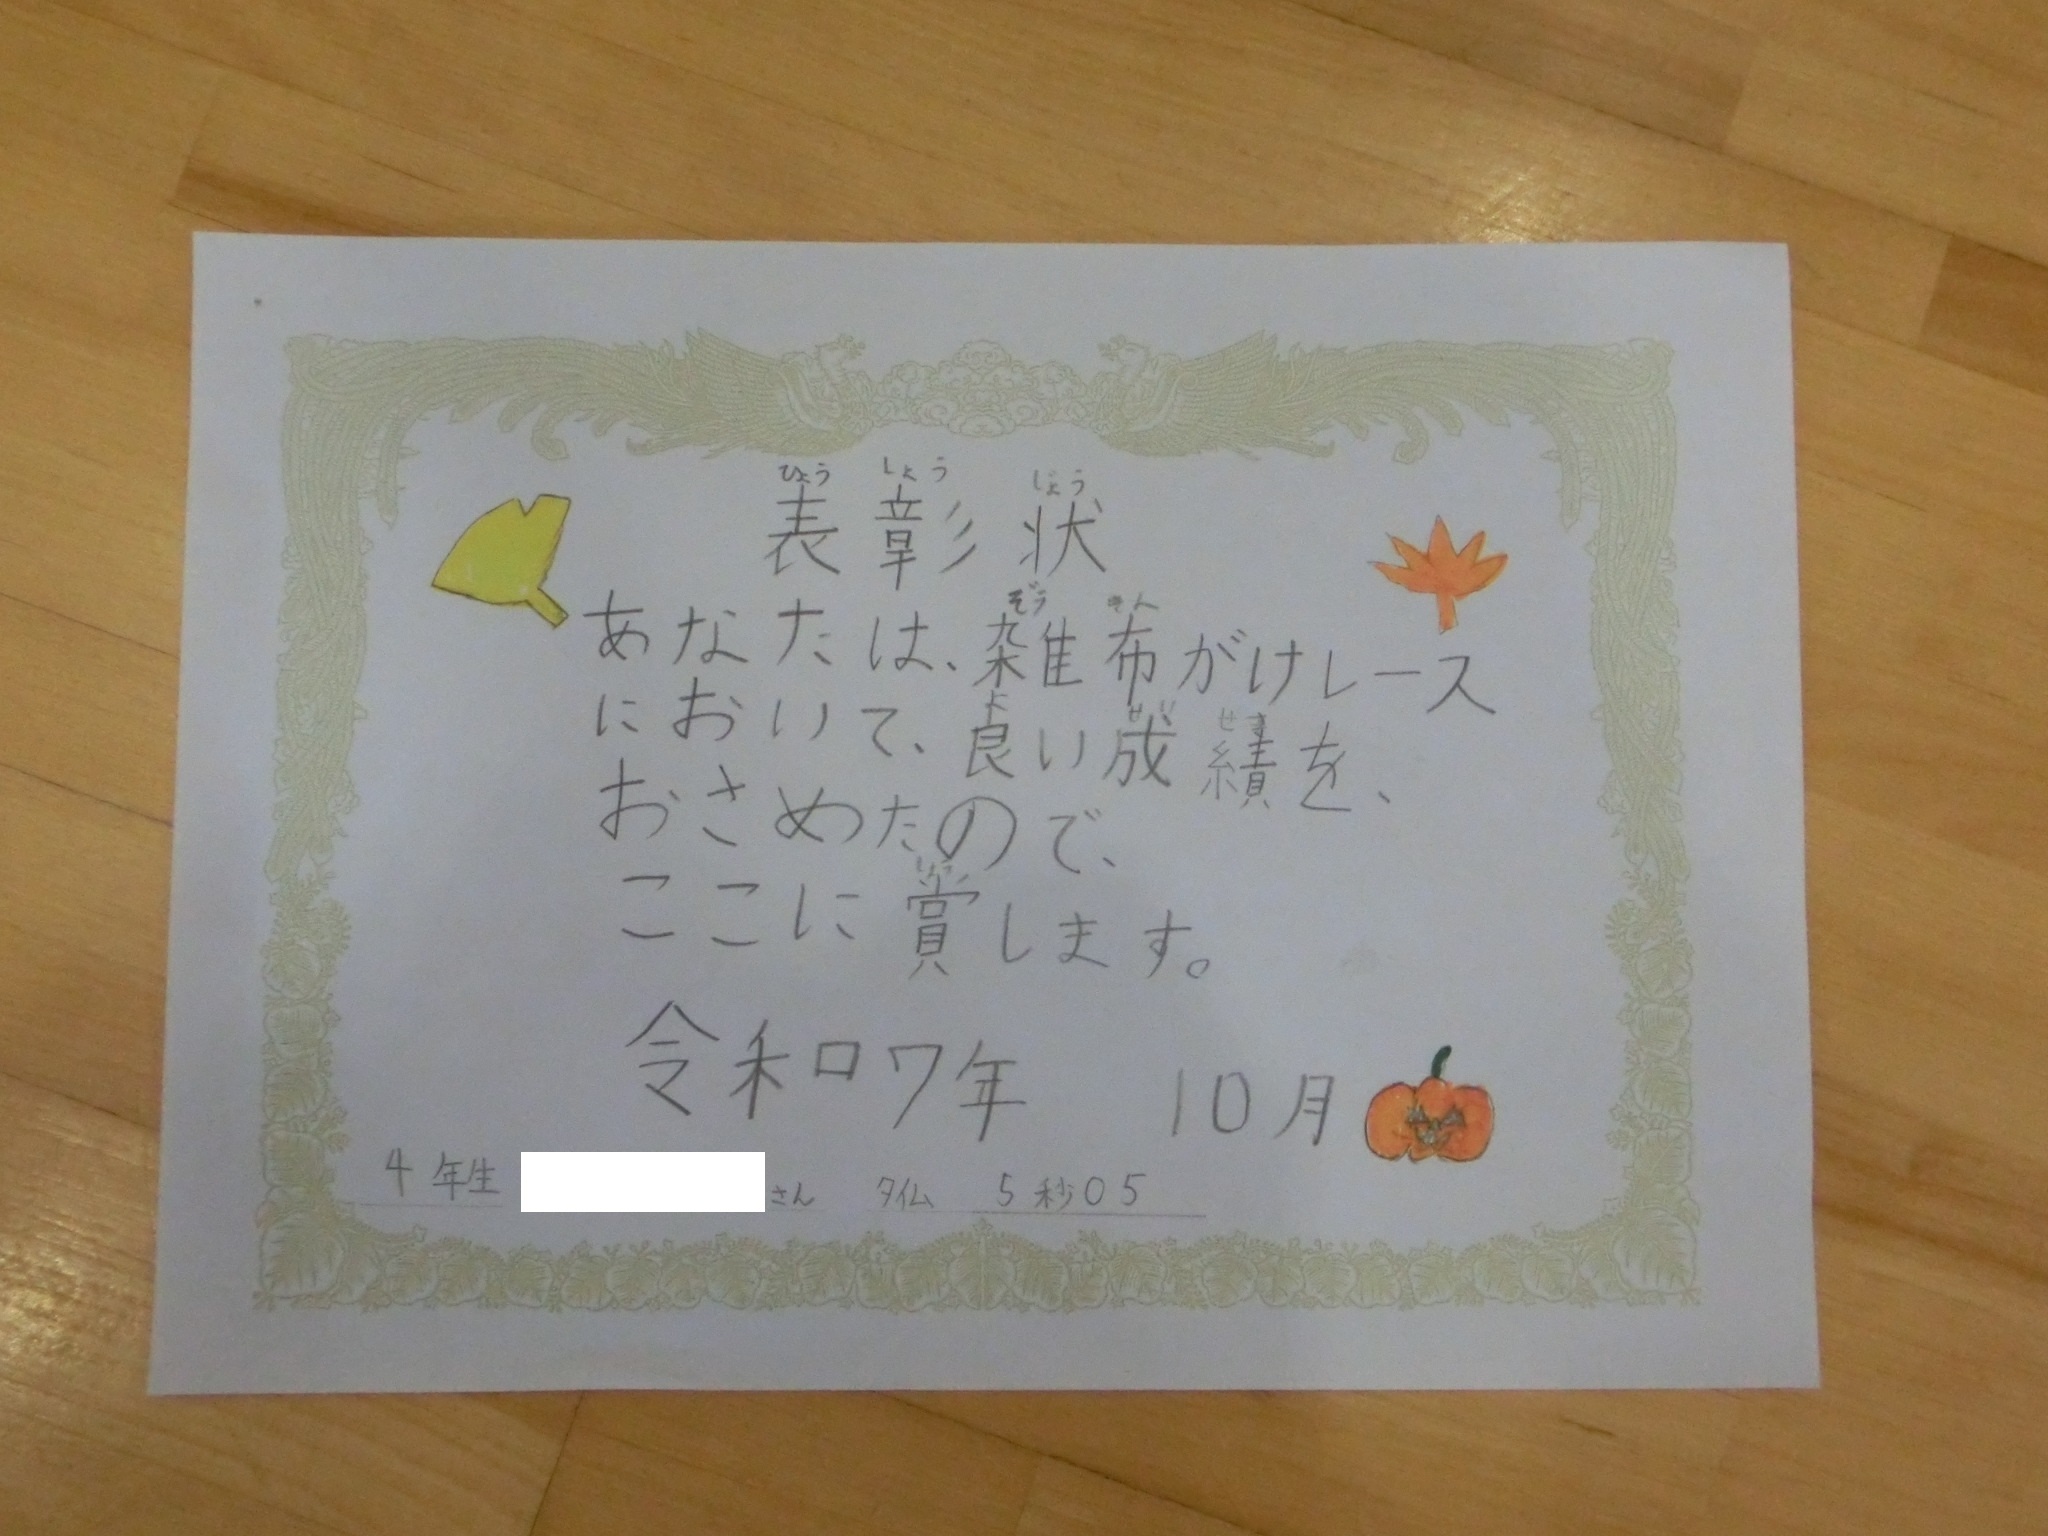 ひょう しょう じょう
表彰状
ぞう きん
あなたは、雑布がけレース
よ せい せき
において、良い成績を、
おさめたので、
しょう
ここに賞します。
令和7年 10月
4年生 さん タイム 5秒05